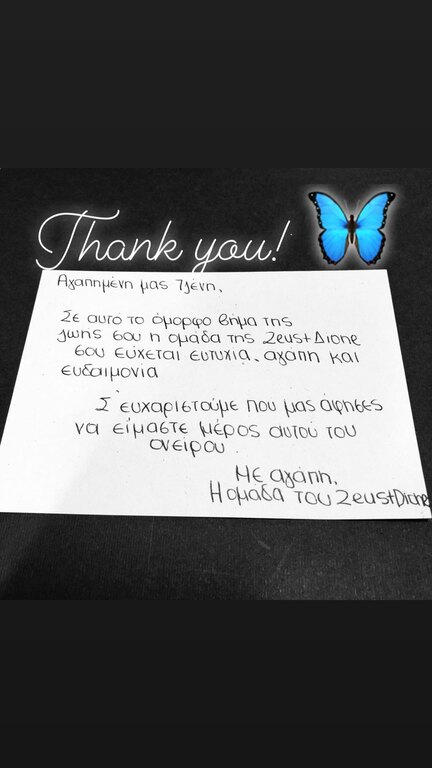 Thank you!
Αγαπημένη μας Τζένη,
Σε αυτό το όμορφο βήμα της
ζωής σου η ομάδα της Zeus+Dione
σου εύχεται ευτυχία, αγάπη και
ευδαιμονία
Σ' ευχαριστούμε που μας άφησες
να είμαστε μέρος αυτού του
ονείρου.
Με αγάπη,
Η ομάδα του Zeus+Dione